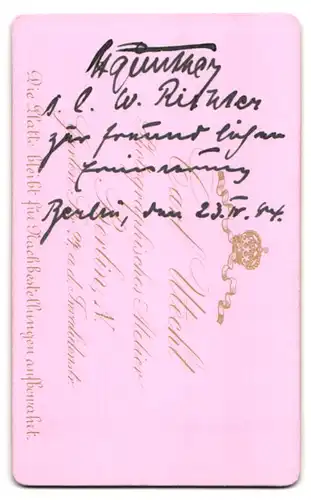 H Günther
s. l. W. Richter
zur freundlichen
Erinnerung
Berlin, den 23.IV.94.
Carl Utecht
Photographisches Atelier
Berlin, N.
a.d. Invalidenstr.
Die Platte bleibt für Nachbestellungen aufbewahrt.